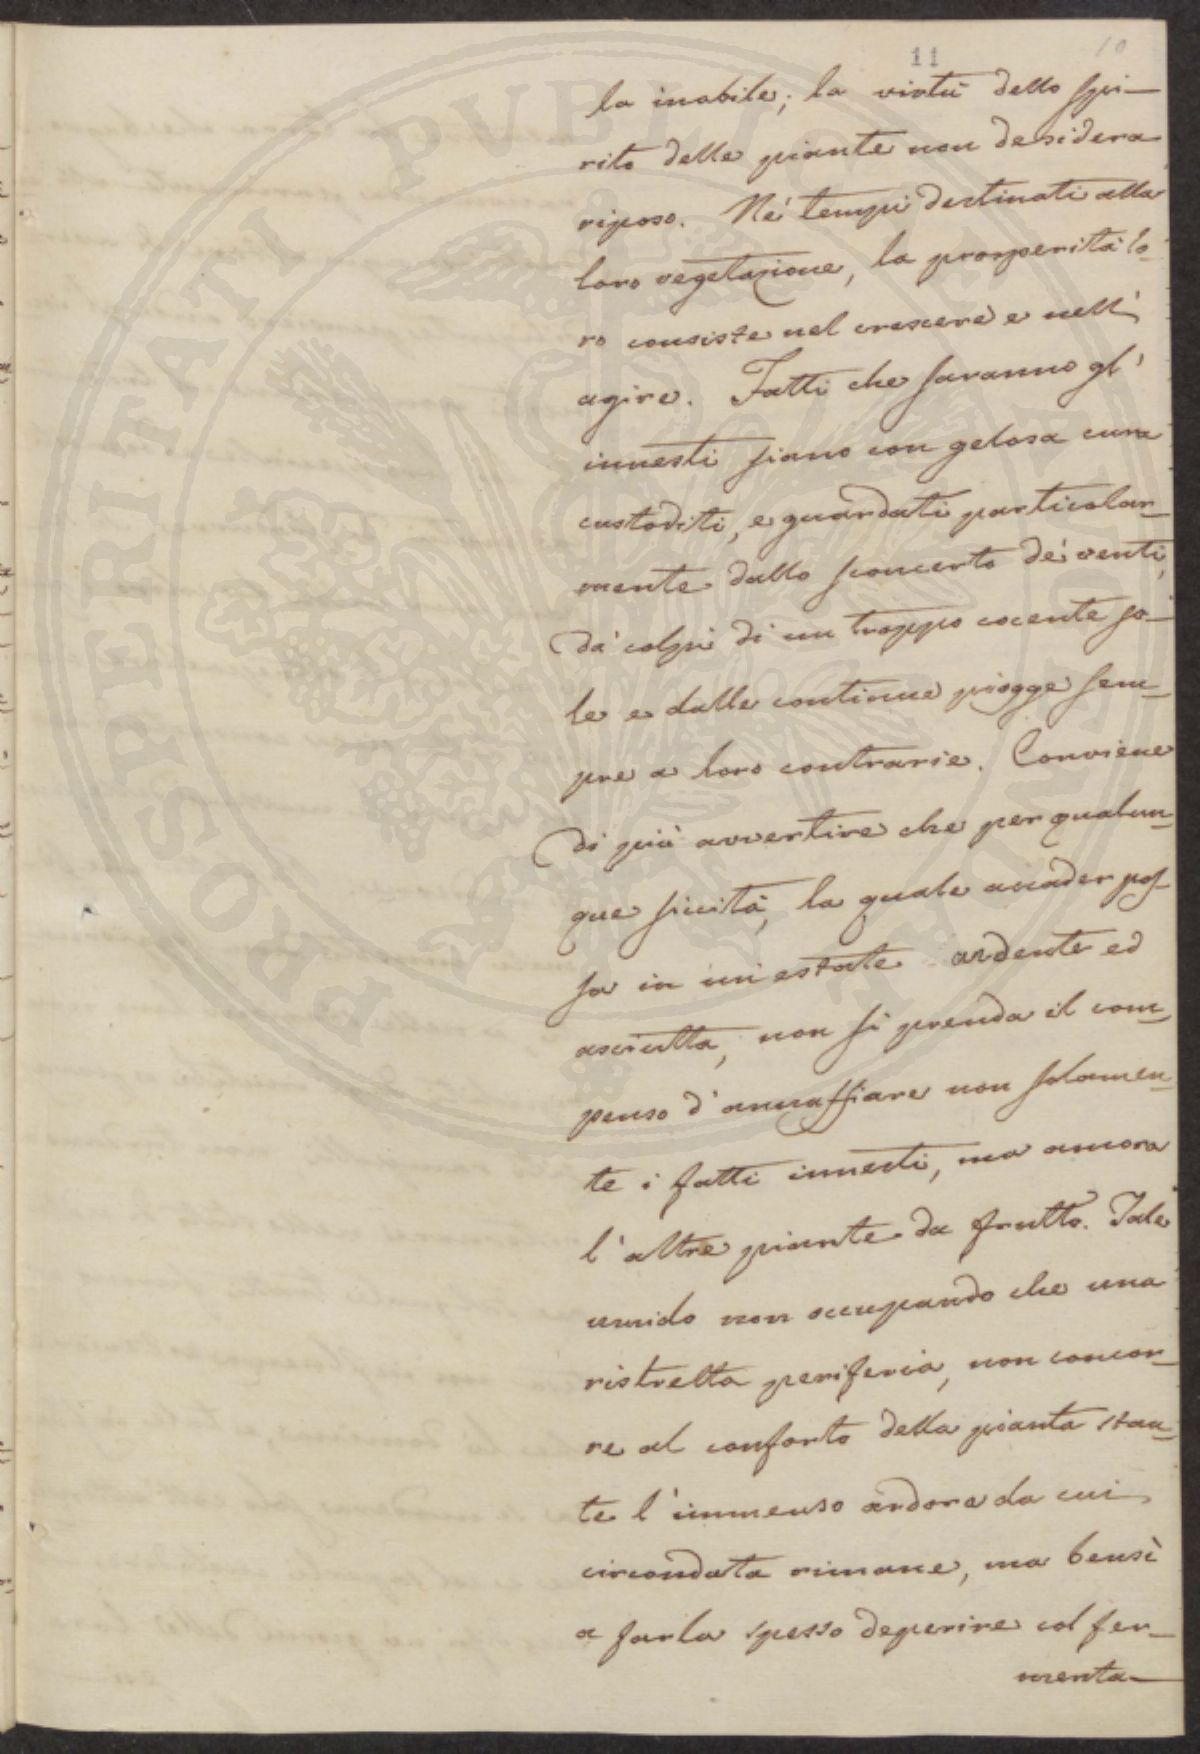 11 10
la inabile; la virtù dello spi-
rito delle piante non desidera
riposo. Ne' tempi destinati alla
loro vegetazione, la prosperità lo-
ro consiste nel crescere e nell'
agire. Fatti che saranno gl'
innesti siano con gelosa cura
custoditi, e guardati particolar-
mente dallo sconcerto de' venti,
da' colpi di un troppo cocente so-
le e dalle continue piogge sem-
pre a loro contrarie. Conviene
di più avvertire che per qualun-
que siccità, la quale accader pos-
sa in un'estate ardente ed
asciutta, non si prenda il com-
penso d'annaffiare non solamen-
te i fatti innesti, ma ancora
l'altre piante da frutto. Tale
umido non occupando che una
ristretta periferia, non concor-
re al conforto della pianta stan-
te l'immenso ardore da cui
circondata rimane, ma bensì
a farla spesso deperire col fer-
menta-
PROSPERITATI PUBLICAE AUGENDAE